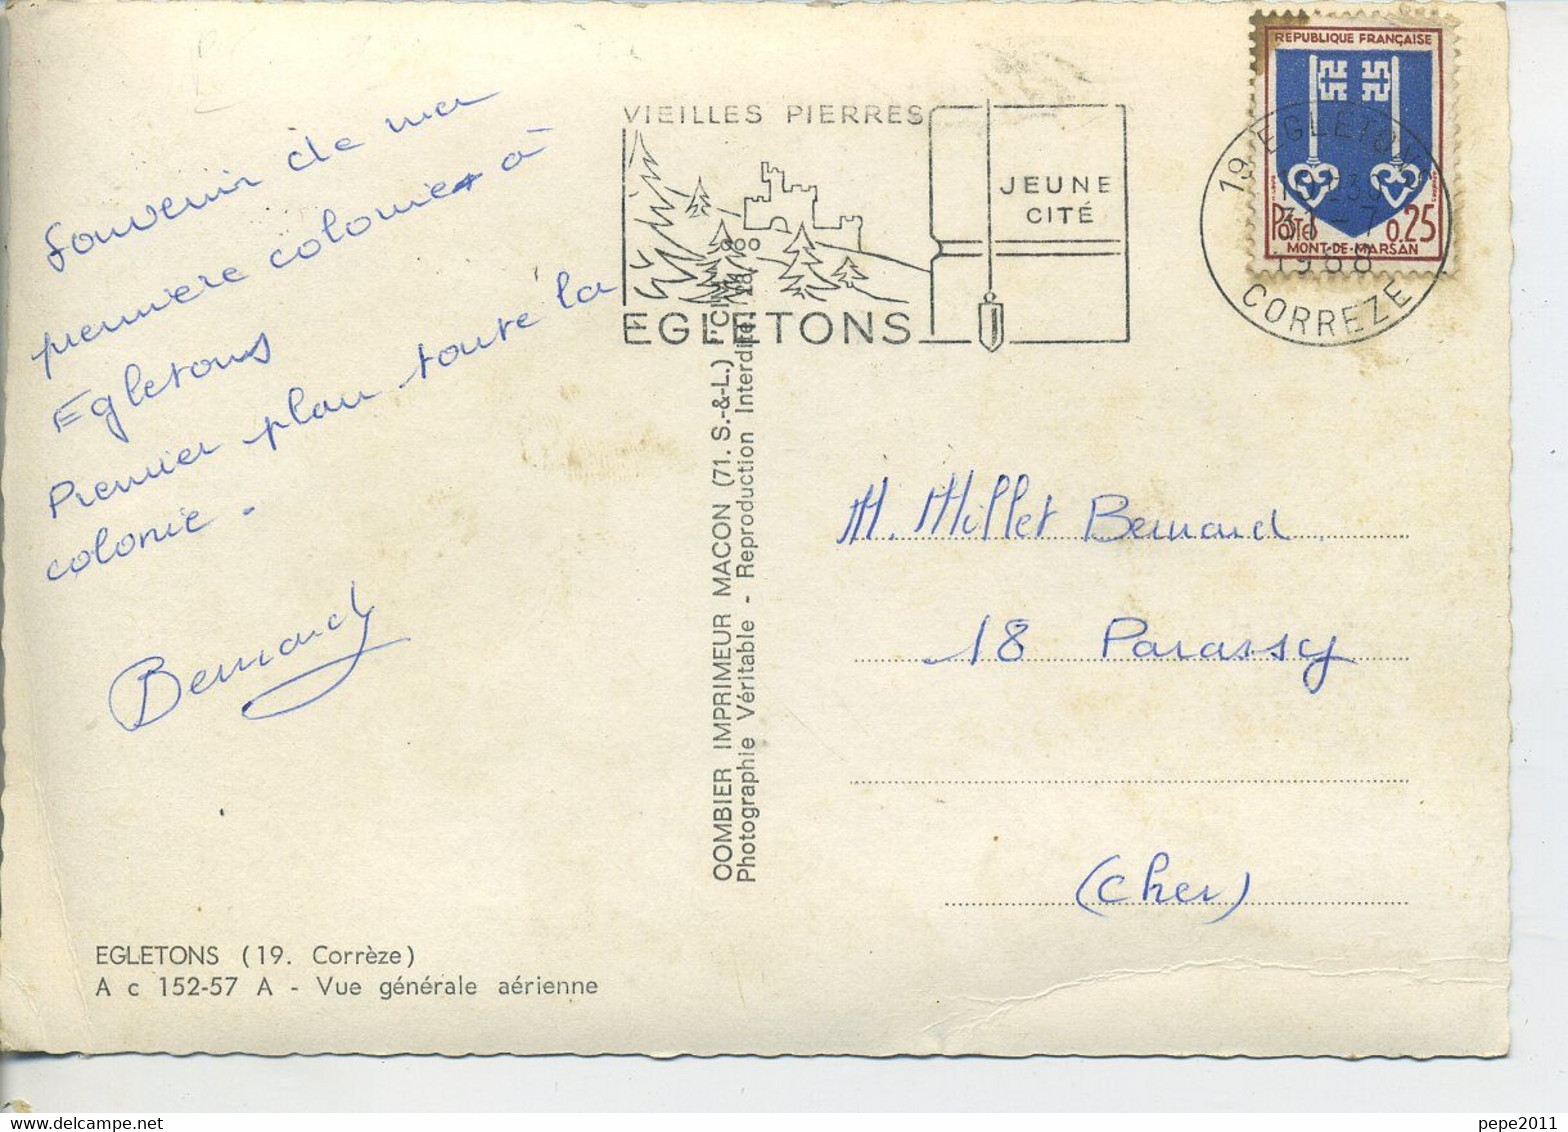 Souvenir de ma
première colonie à
Egletons
Premier plan toute la
colonie.
Bernard
EGLETONS (19. Corrèze)
A c 152-57 A - Vue générale aérienne
VIEILLES PIERRES
JEUNE
CITÉ
EGLETONS
COMBIER IMPRIMEUR MACON (71. S.-&-L.) "CIM"
Photographie Véritable - Reproduction Interdite
REPUBLIQUE FRANÇAISE
POSTES 0,25
MONT-DE-MARSAN
19 EGLETONS
31-7
1968
CORREZE
M. Millet Bernard
18 Parassy
(Cher)
pepe2011